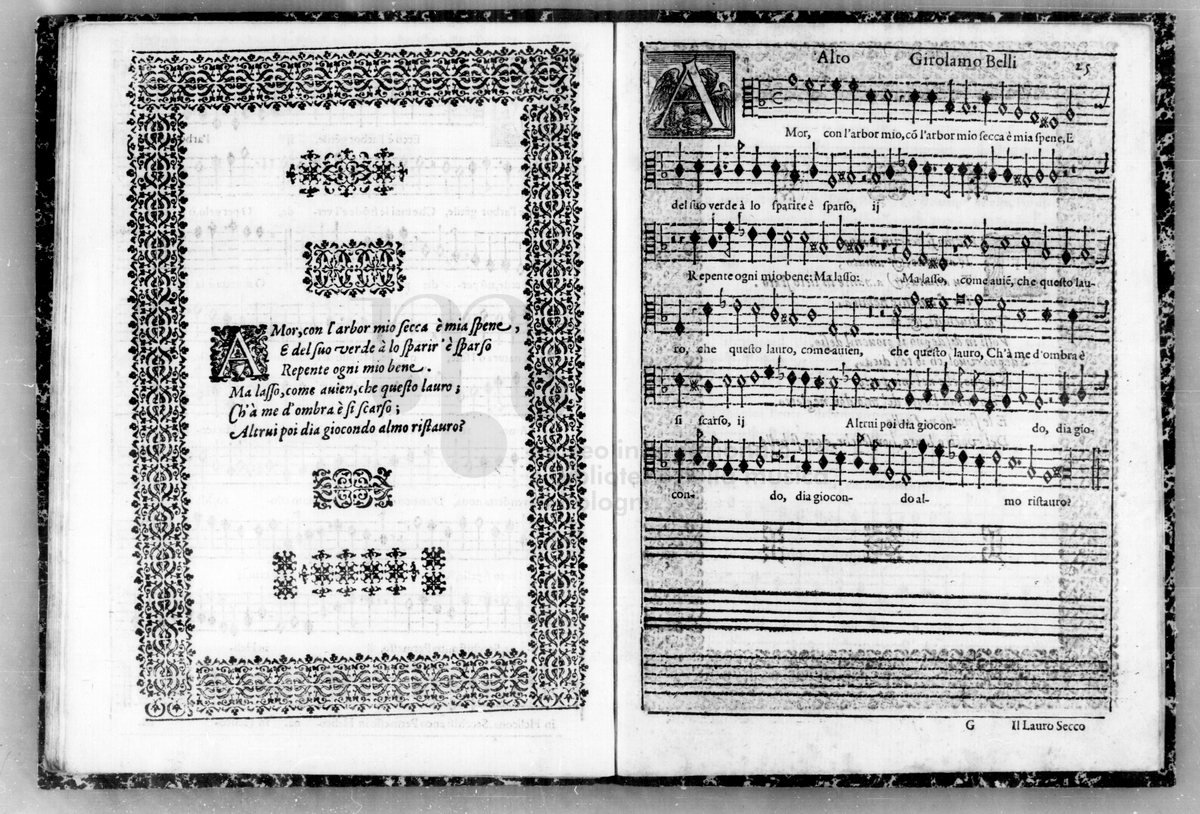 AMor, con l'arbor mio secca è mia spene,
E del suo verde à lo sparir' è sparso
Repente ogni mio bene.
Ma lasso, come auien, che questo lauro;
Ch'à me d'ombra è si scarso;
Altrui poi dia giocondo almo ristauro?
Alto Girolamo Belli 25
AMor, con l'arbor mio, cō l'arbor mio secca è mia spene, E
del suo verde à lo sparire è sparso, ij
Repente ogni mio bene: Ma lasso: Ma lasso, come auiē, che questo lau-
ro, che questo lauro, come auien, che questo lauro, Ch'à me d'ombra è
si scarso, ij Altrui poi dia giocon- do, dia gio-
con- do, dia giocon- do al- mo ristauro?
G Il Lauro Secco